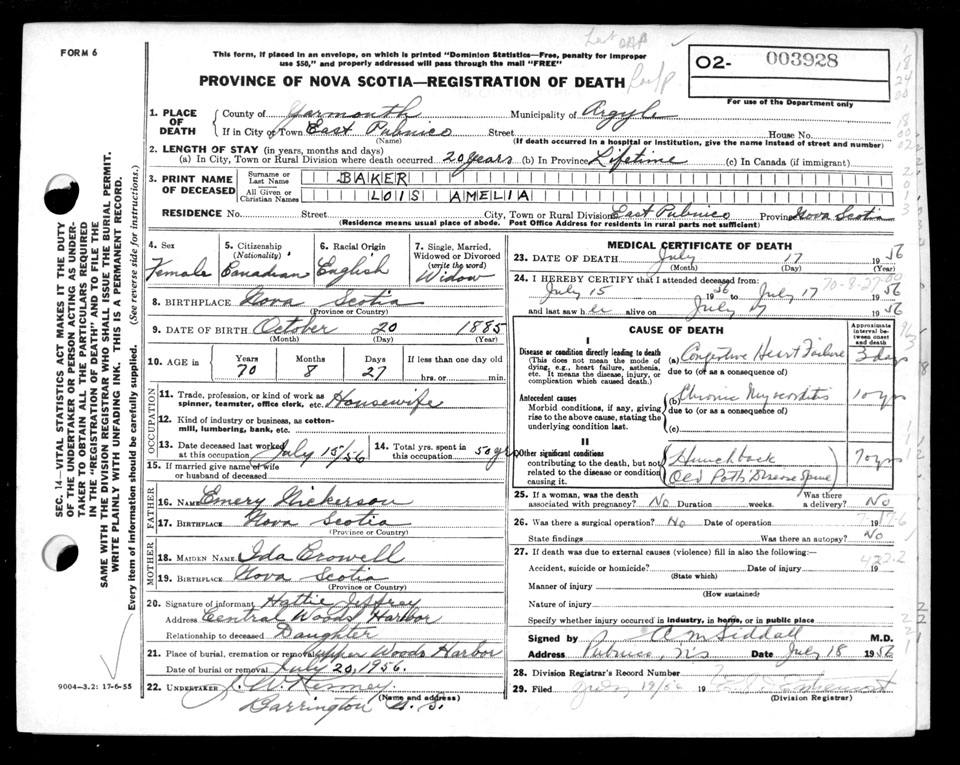 FORM 6
This form, if placed in an envelope, on which is printed "Dominion Statistics—Free, penalty for improper
use $50," and properly addressed will pass through the mail "FREE"
PROVINCE OF NOVA SCOTIA—REGISTRATION OF DEATH
02- 003928
For use of the Department only
SEC. 14—VITAL STATISTICS ACT MAKES IT THE DUTY
OF THE UNDERTAKER OR PERSON ACTING AS UNDER-
TAKER TO OBTAIN ALL THE PARTICULARS REQUIRED
IN THE "REGISTRATION OF DEATH" AND TO FILE THE
SAME WITH THE DIVISION REGISTRAR WHO SHALL ISSUE THE BURIAL PERMIT.
WRITE PLAINLY WITH UNFADING INK. THIS IS A PERMANENT RECORD.
Every item of information should be carefully supplied. (See reverse side for instructions.)
1. PLACE OF DEATH
County of Yarmouth Municipality of Argyle
If in City or Town East Pubnico Street House No.
(Name) (If death occurred in a hospital or institution, give the name instead of street and number)
2. LENGTH OF STAY (in years, months and days)
(a) In City, Town or Rural Division where death occurred 20 years (b) In Province Lifetime (c) In Canada (if immigrant)
3. PRINT NAME OF DECEASED
Surname or Last Name BAKER
All Given or Christian Names LOIS AMELIA
RESIDENCE No. Street City, Town or Rural Division East Pubnico Province Nova Scotia
(Residence means usual place of abode. Post Office Address for residents in rural parts not sufficient)
4. Sex 5. Citizenship (Nationality) 6. Racial Origin 7. Single, Married, Widowed or Divorced (write the word)
Female Canadian English Widow
8. BIRTHPLACE Nova Scotia
(Province or Country)
9. DATE OF BIRTH October 20 1885
(Month) (Day) (Year)
10. AGE in Years Months Days If less than one day old
70 8 27 hrs. or min.
OCCUPATION
11. Trade, profession, or kind of work as
spinner, teamster, office clerk, etc. Housewife
12. Kind of industry or business, as cotton-
mill, lumbering, bank, etc.
13. Date deceased last worked at this occupation July 15/56 14. Total yrs. spent in this occupation 50 yrs
15. If married give name of wife
or husband of deceased
FATHER
16. NAME Emery Nickerson
17. BIRTHPLACE Nova Scotia
(Province or Country)
MOTHER
18. MAIDEN NAME Ida Crowell
19. BIRTHPLACE Nova Scotia
(Province or Country)
20. Signature of informant Hattie Jeffray
Address Central Woods Harbor
Relationship to deceased Daughter
21. Place of burial, cremation or removal Upper Woods Harbor
Date of burial or removal July 20, 1956.
22. UNDERTAKER J. W. Kenney
(Name and address)
Barrington N. S.
9004-3.2: 17-6-55
MEDICAL CERTIFICATE OF DEATH
23. DATE OF DEATH July 17 1956
(Month) (Day) (Year)
24. I HEREBY CERTIFY that I attended deceased from:
July 15 1956 to July 17 1956
70-8-27
and last saw her alive on July 17 1956
CAUSE OF DEATH
Approximate interval between onset and death
I
Disease or condition directly leading to death
(This does not mean the mode of
dying, e.g., heart failure, asthenia,
etc. It means the disease, injury, or
complication which caused death.)
(a) Congestive Heart Failure 3 days
due to (or as a consequence of)
Antecedent causes
Morbid conditions, if any, giving
rise to the above cause, stating the
underlying condition last.
(b) Chronic Myocarditis 10 yrs
due to (or as a consequence of)
(c)
II
Other significant conditions
contributing to the death, but not
related to the disease or condition
causing it.
Hunchback 70 yrs
Old Pott's Disease Spine
25. If a woman, was the death
associated with pregnancy? No Duration weeks. Was there a delivery? No
26. Was there a surgical operation? No Date of operation 19
State findings Was there an autopsy? No
27. If death was due to external causes (violence) fill in also the following:—
422.2
Accident, suicide or homicide? Date of injury 19
(State which)
Manner of injury
(How sustained)
Nature of injury
Specify whether injury occurred in industry, in home, or in public place
Signed by A M Siddall M.D.
Address Pubnico, N.S Date July 18 1956
28. Division Registrar's Record Number
29. Filed July 19/56 19
(Division Registrar)